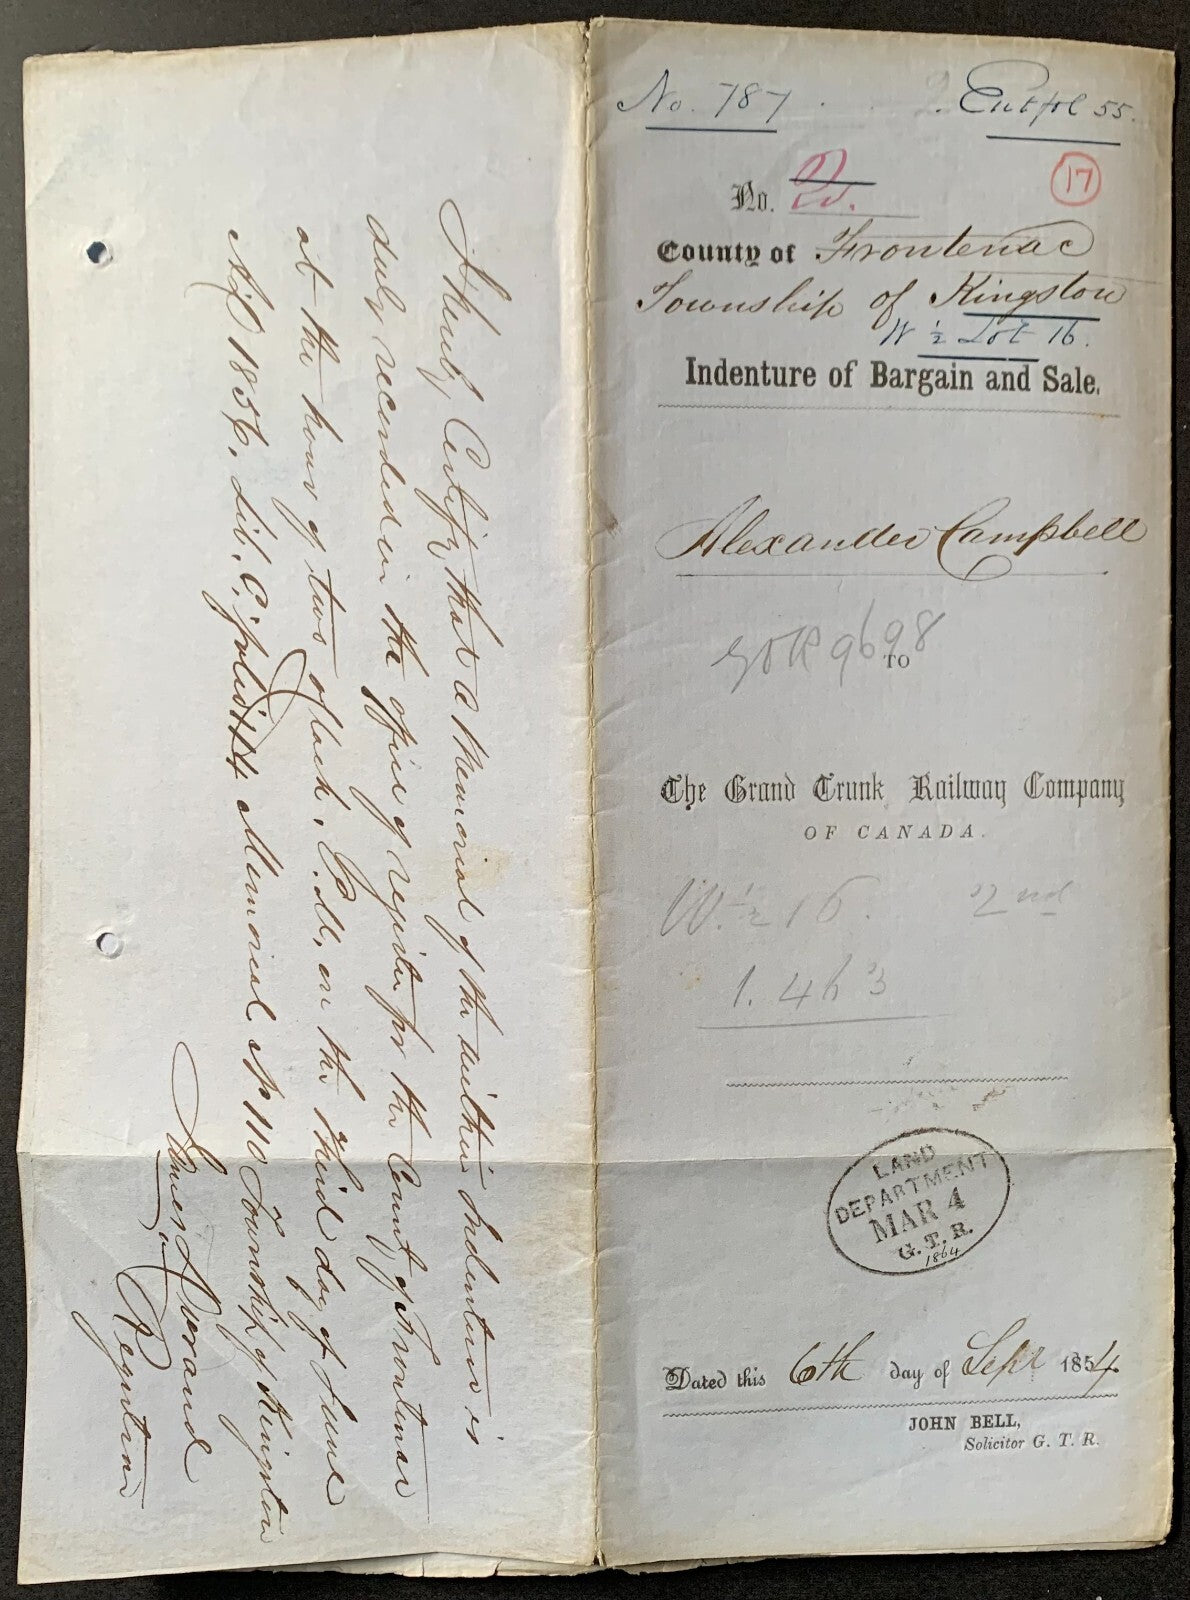 No. 787
Ent fol 55.
No. 2d.
17
County of Frontenac
Township of Kingston
W ½ Lot 16.
Indenture of Bargain and Sale.
Alexander Campbell
GTR 9698
TO
The Grand Trunk Railway Company
OF CANADA.
W. ½ 16. 2nd
1. 463
LAND
DEPARTMENT
MAR 4
G. T. R.
1864
Dated this 6th day of Sept 1854.
JOHN BELL,
Solicitor G. T. R.
I hereby Certify that a Memorial of the within Indenture is
duly recorded in the office of register for the County of Frontenac
at the hour of two oClock, P.M, on the third day of June
AD 1856, Lib. C, folio Memorial No 110 Township of Kingston
James Durand
Registrar